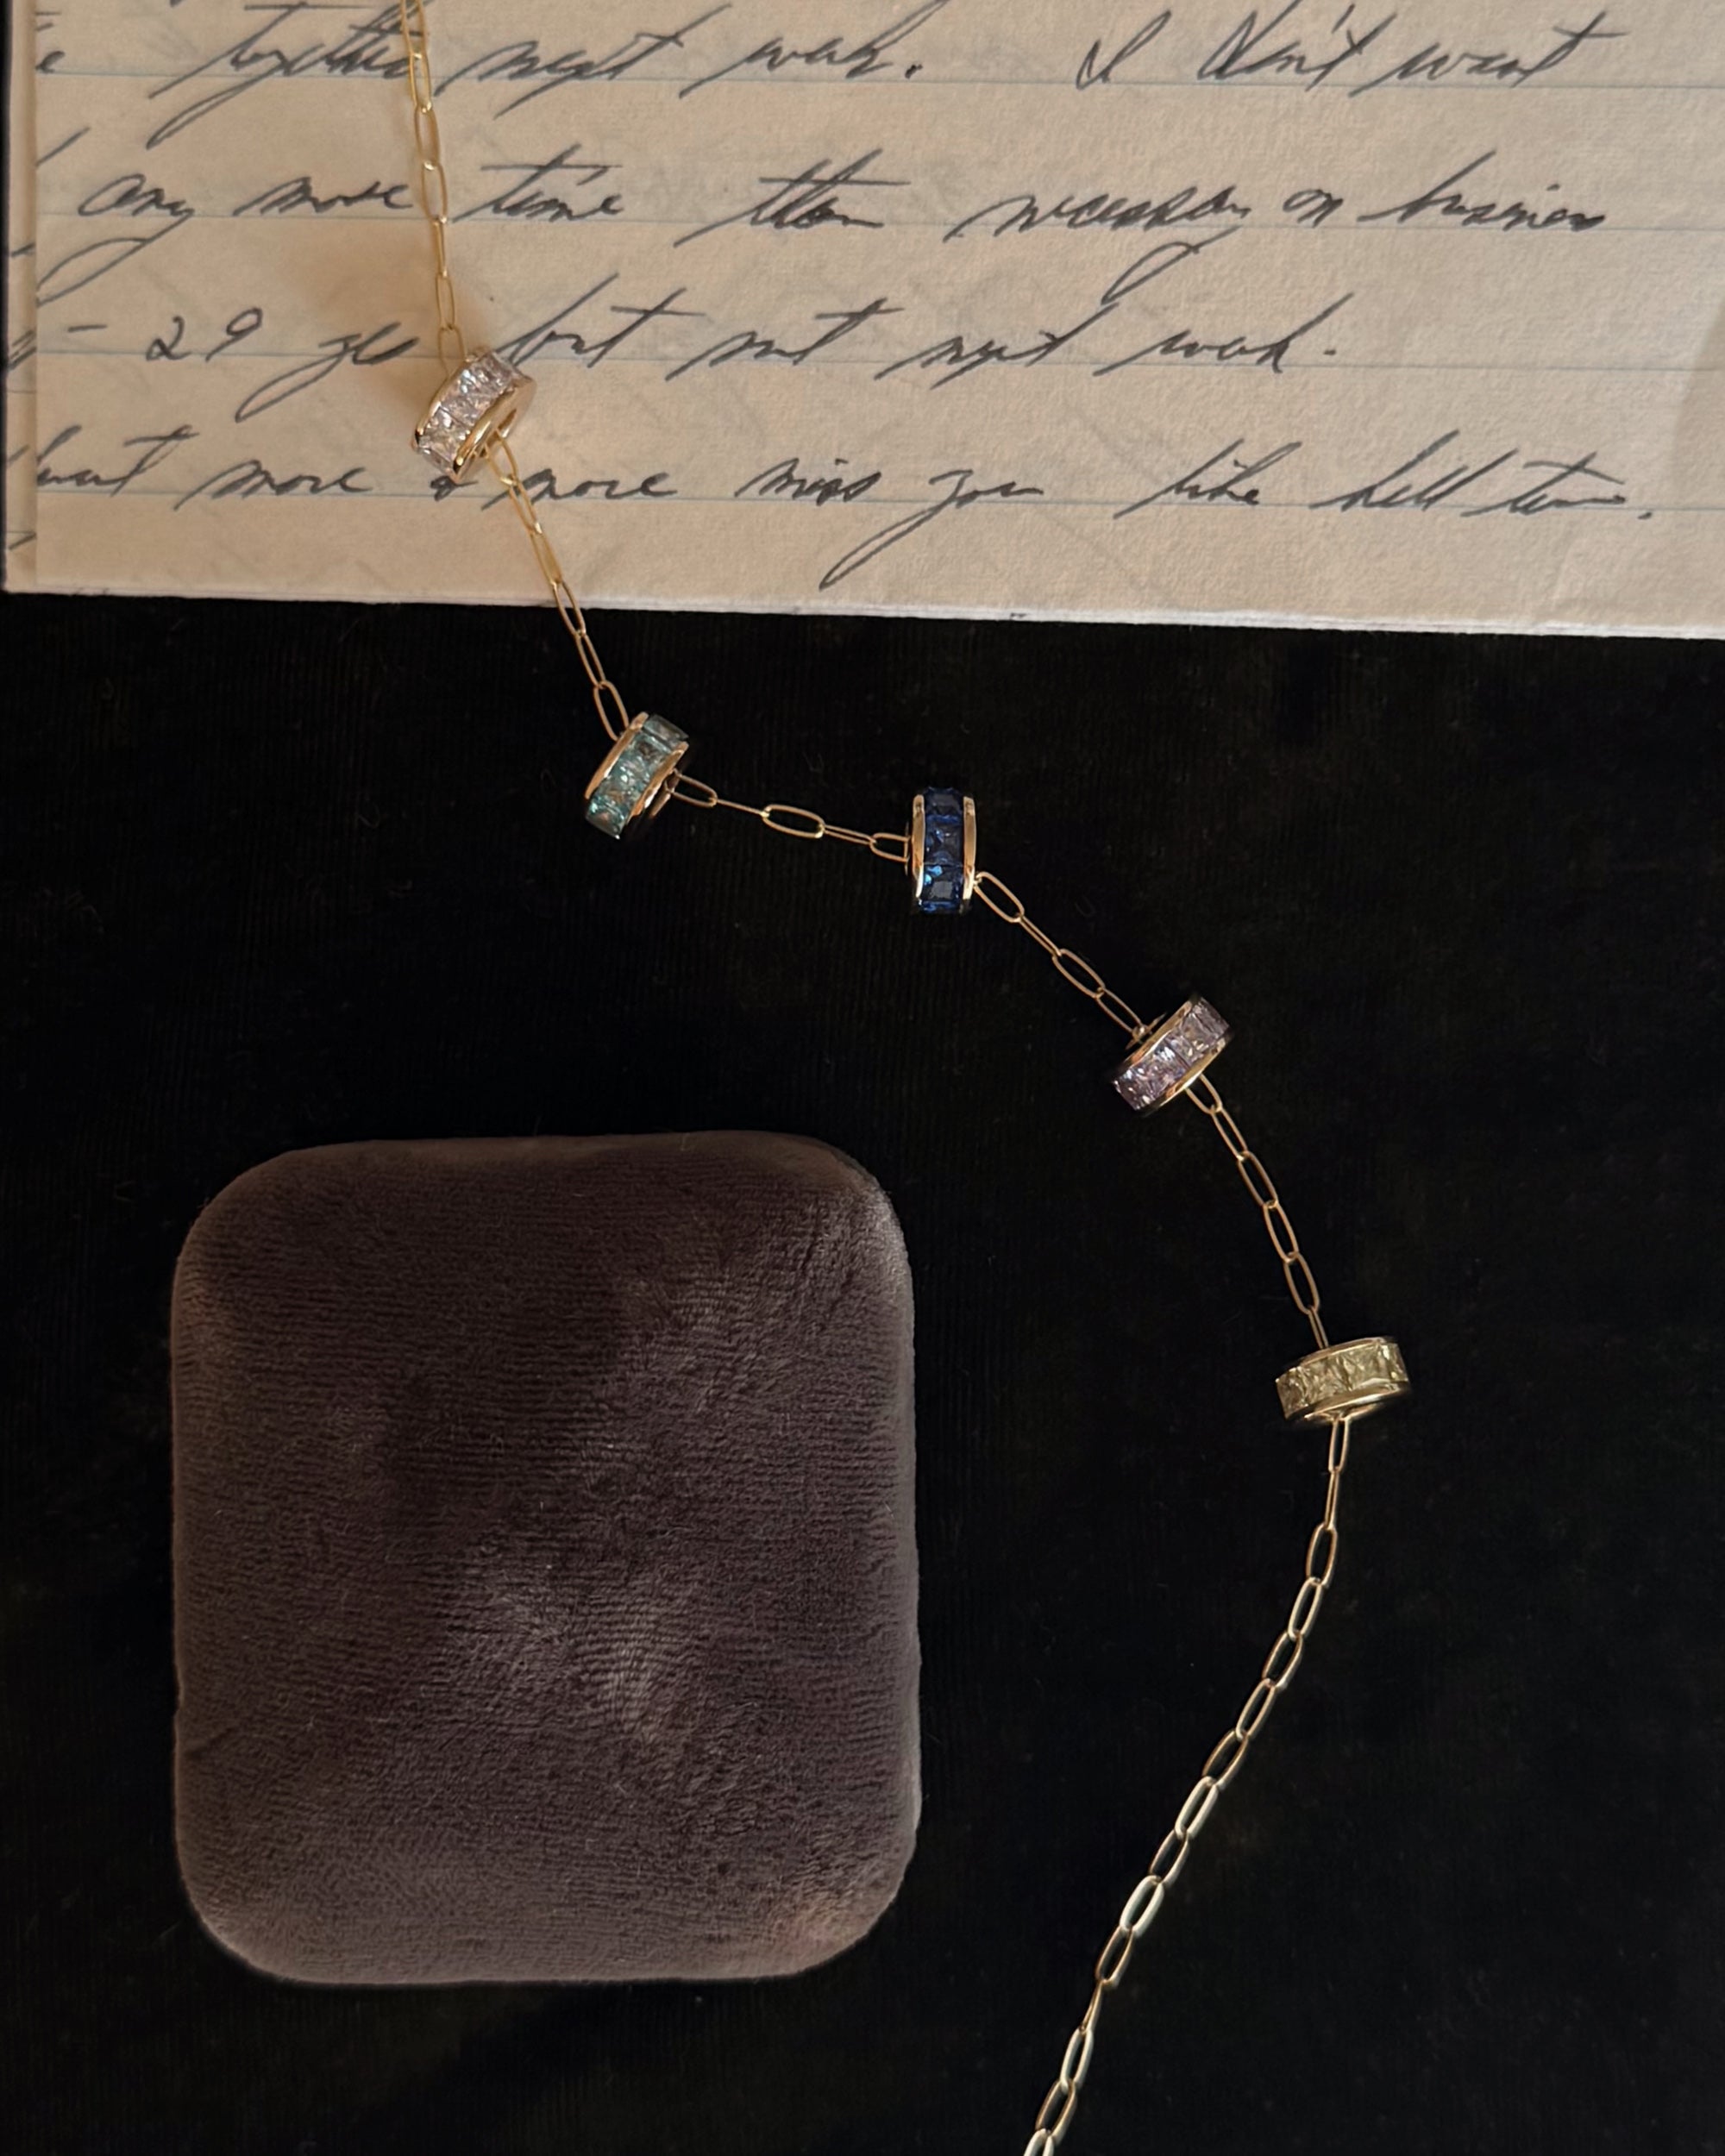 together next week. I don't want
any more time than necessary on business
- 29 yes but not next week.
want more & more miss you like hell